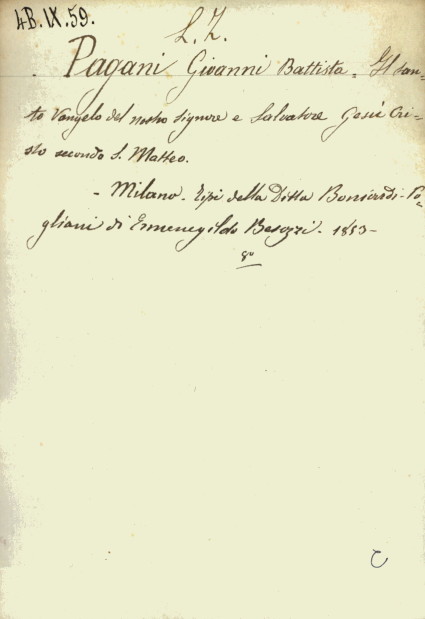 4B.IX.59.
L.Z.
Pagani Giovanni Battista. Il san-
to Vangelo del nostro Signore e Salvatore Gesù Cri-
sto secondo S. Matteo.
- Milano. Tipi della Ditta Boniardi-Po-
gliani di Ermenegildo Besozzi. 1853-
8º
C